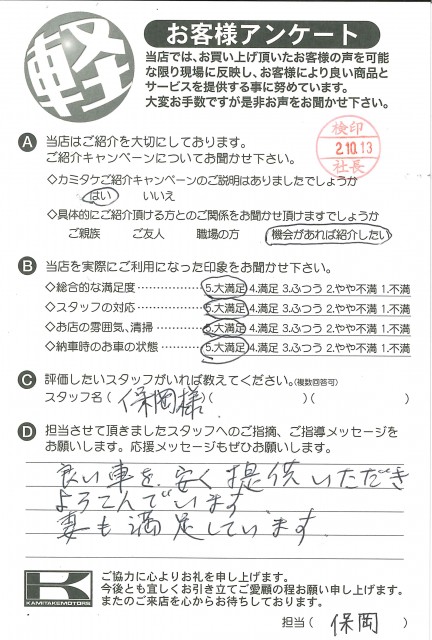 軽
お客様アンケート
当店では、お買い上げ頂いたお客様の声を可能
な限り現場に反映し、お客様により良い商品と
サービスを提供する事に努めています。
大変お手数ですが是非お声をお聞かせ下さい。
検印
2.10.13
社長
A 当店はご紹介を大切にしております。
ご紹介キャンペーンについてお聞かせ下さい。
◇カミタケご紹介キャンペーンのご説明はありましたでしょうか
はい いいえ
◇具体的にご紹介頂ける方とのご関係をお聞かせ頂けますでしょうか
ご親族 ご友人 職場の方 機会があれば紹介したい
B 当店を実際にご利用になった印象をお聞かせ下さい。
◇総合的な満足度 5.大満足 4.満足 3.ふつう 2.やや不満 1.不満
◇スタッフの対応 5.大満足 4.満足 3.ふつう 2.やや不満 1.不満
◇お店の雰囲気、清掃 5.大満足 4.満足 3.ふつう 2.やや不満 1.不満
◇納車時のお車の状態 5.大満足 4.満足 3.ふつう 2.やや不満 1.不満
C 評価したいスタッフがいれば教えてください。(複数回答可)
スタッフ名(保岡様)( )( )
D 担当させて頂きましたスタッフへのご指摘、ご指導メッセージを
お願いします。応援メッセージもぜひお願いします。
良い車を、安く提供いただき
よろこんでいます
妻も満足しています。
K
KAMITAKEMOTORS
ご協力に心よりお礼を申し上げます。
今後とも宜しくお引き立てご愛顧の程お願い申し上げます。
またのご来店を心からお待ちしております。
担当(保岡)